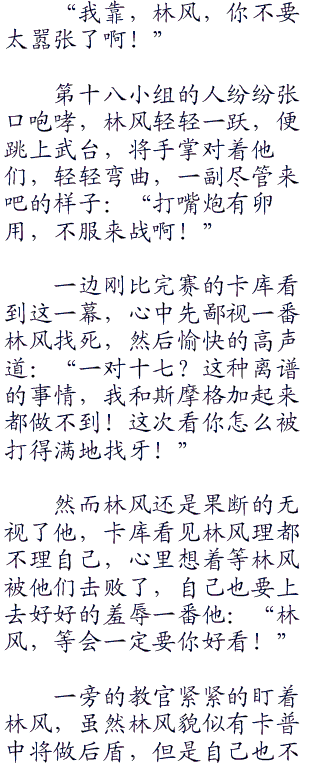 “我靠，林风，你不要
太嚣张了啊！”
第十八小组的人纷纷张
口咆哮，林风轻轻一跃，便
跳上武台，将手掌对着他
们，轻轻弯曲，一副尽管来
吧的样子：“打嘴炮有卵
用，不服来战啊！”
一边刚比完赛的卡库看
到这一幕，心中先鄙视一番
林风找死，然后愉快的高声
道：“一对十七？这种离谱
的事情，我和斯摩格加起来
都做不到！这次看你怎么被
打得满地找牙！”
然而林风还是果断的无
视了他，卡库看见林风理都
不理自己，心里想着等林风
被他们击败了，自己也要上
去好好的羞辱一番他：“林
风，等会一定要你好看！”
一旁的教官紧紧的盯着
林风，虽然林风貌似有卡普
中将做后盾，但是自己也不